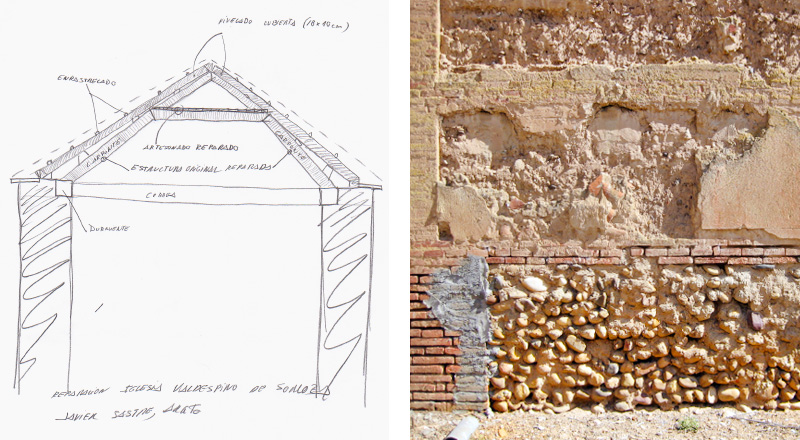 NIVELADO CUBIERTA (18x10cm)
ENRASTRELADO
ARTESONADO REPARADO
CARGONTE
CARGONTE
ESTRUCTURA ORIGINAL REPARADA
CERCHA
DURMIENTE
REPARACION IGLESIA VALDESPINO DE SOMOZA
JAVIER SASTRE, ARQTO